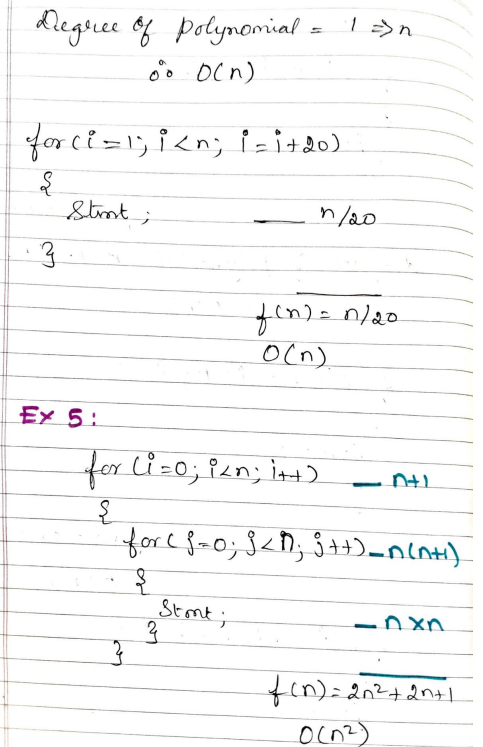 Degree of polynomial = 1 ⇒ n
∴ O(n)
for(i=1; i<n; i=i+20)
{
Stmt; — n/20
}
f(n) = n/20
O(n)
Ex 5:
for (i=0; i<n; i++) — n+1
{
for(j=0; j<n; j++) — n(n+1)
{
Stmt; — n×n
}
}
f(n) = 2n²+2n+1
O(n²)